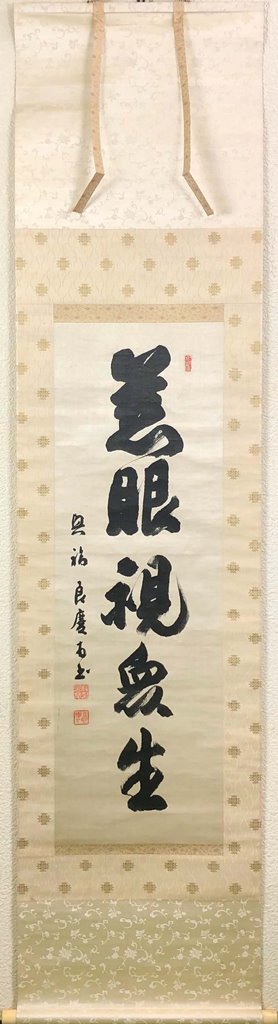 慈眼視衆生
興福良慶百七